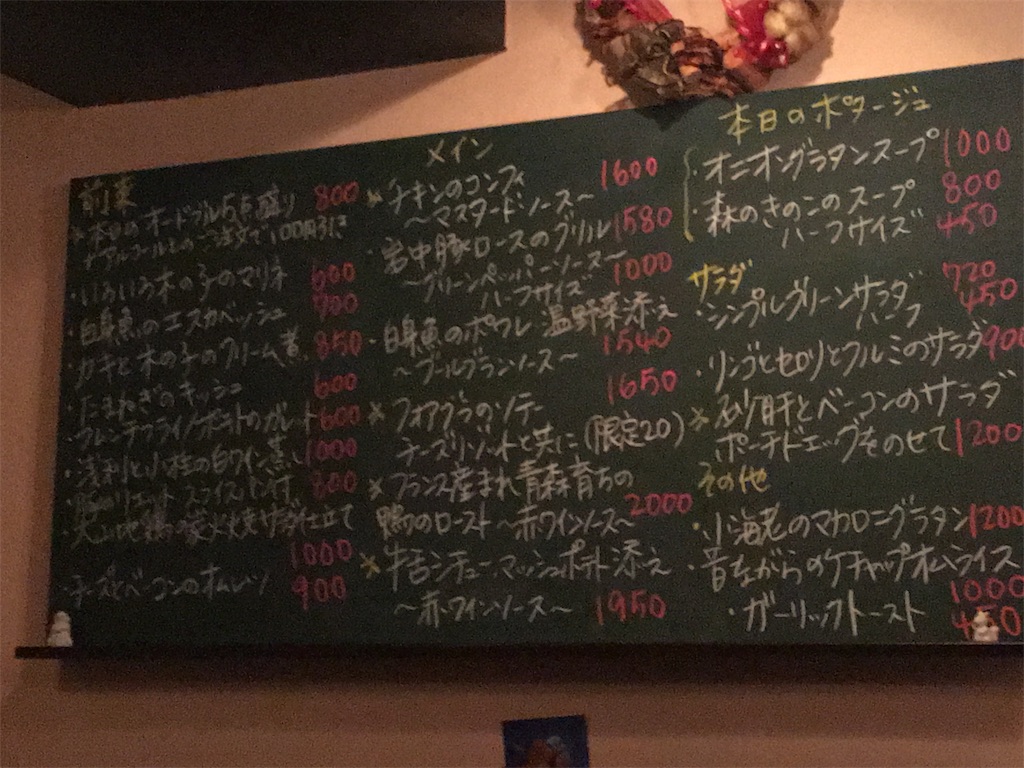 前菜
※本日のオードブル5点盛り 800
※アルコールとのご注文で100円引き
・いろいろ木の子のマリネ 600
・白身魚のエスカベッシュ 700
・カキと木の子のクリーム煮 850
・たまねぎのキッシュ 600
・フレンチフライ/ポテトのガレット 600
・浅利と小柱の白ワイン蒸し 1000
・豚のリエット スライスパン付 800
大山地鶏の炭火焼サラダ仕立て
1000
・チーズとベーコンのオムレツ 900
メイン
※チキンのコンフィ 1600
～マスタードソース～
・岩中豚ロースのグリル 1580
～グリーンペッパーソース～
ハーフサイズ 1000
・白身魚のポワレ 温野菜添え
～ブールブランソース～ 1540
※フォアグラのソテー 1650
チーズリゾットと共に(限定20)
※フランス産まれ青森育ちの
鴨のロースト～赤ワインソース～ 2000
※牛舌シチュー、マッシュポテト添え
～赤ワインソース～ 1950
本日のポタージュ
・オニオングラタンスープ 1000
・森のきのこのスープ 800
ハーフサイズ 450
サラダ
・シンプルグリーンサラダ 720
ハーフ 450
・リンゴとセロリとクルミのサラダ 900
※砂肝とベーコンのサラダ
ポーチドエッグをのせて 1200
その他
・小海老のマカロニグラタン 1200
・昔ながらのケチャップオムライス
1000
・ガーリックトースト 450